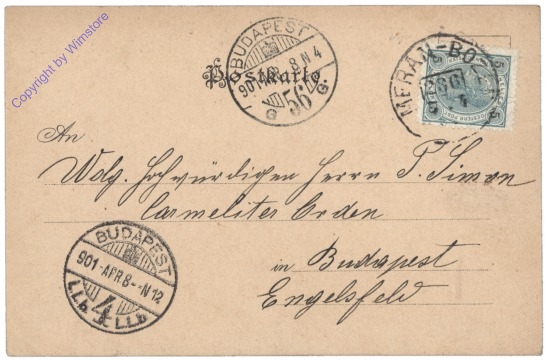 Copyright by Wimstore
BUDAPEST
901 APR 8 N 4
G 56 G
MERAN-BO
Postkarte.
An
Wolg. Hochwürdigen Herrn P. Simon
Carmeliter Orden
in Budapest
Engelsfeld
BUDAPEST
901 APR 8 - N 12
4